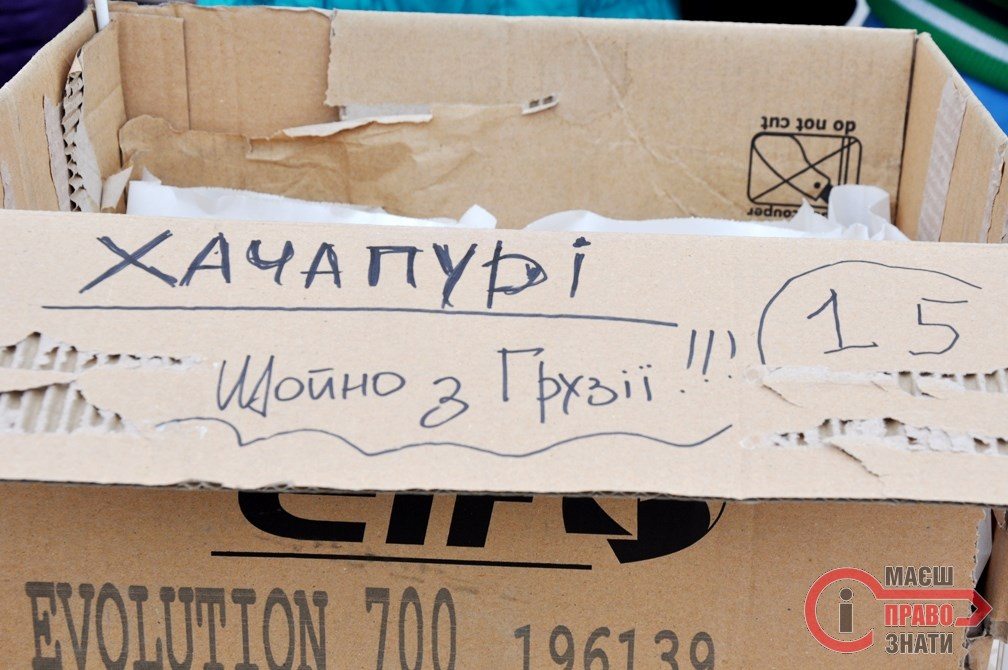 do not cut
couper
ХАЧАПУРІ
15
Щойно з Грузії!!!
EVOLUTION 700 196139
МАЄШ
ПРАВО
ЗНАТИ